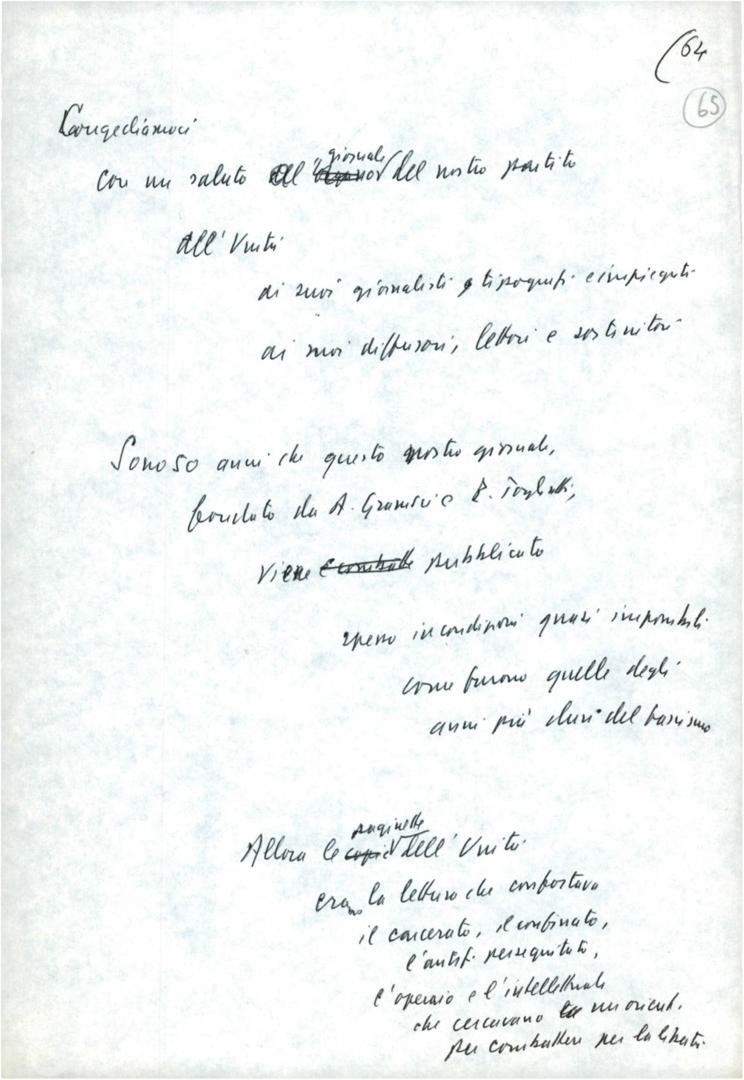 (64
65
Congediamoci
con un saluto all' giornale del nostro partito
all'Unità
ai suoi giornalisti, tipografi e impiegati
ai suoi diffusori, lettori e sostenitori
Sono 50 anni che questo nostro giornale,
fondato da A. Gramsci e P. Togliatti,
viene pubblicato
spesso in condizioni quasi impossibili
come furono quelle degli
anni più duri del fascismo
Allora le paginette dell'Unità
erano la lettura che confortava
il carcerato, il confinato,
l'antif. perseguitato,
l'operaio e l'intellettuale
che cercavano un orient.
per combattere per la libertà.